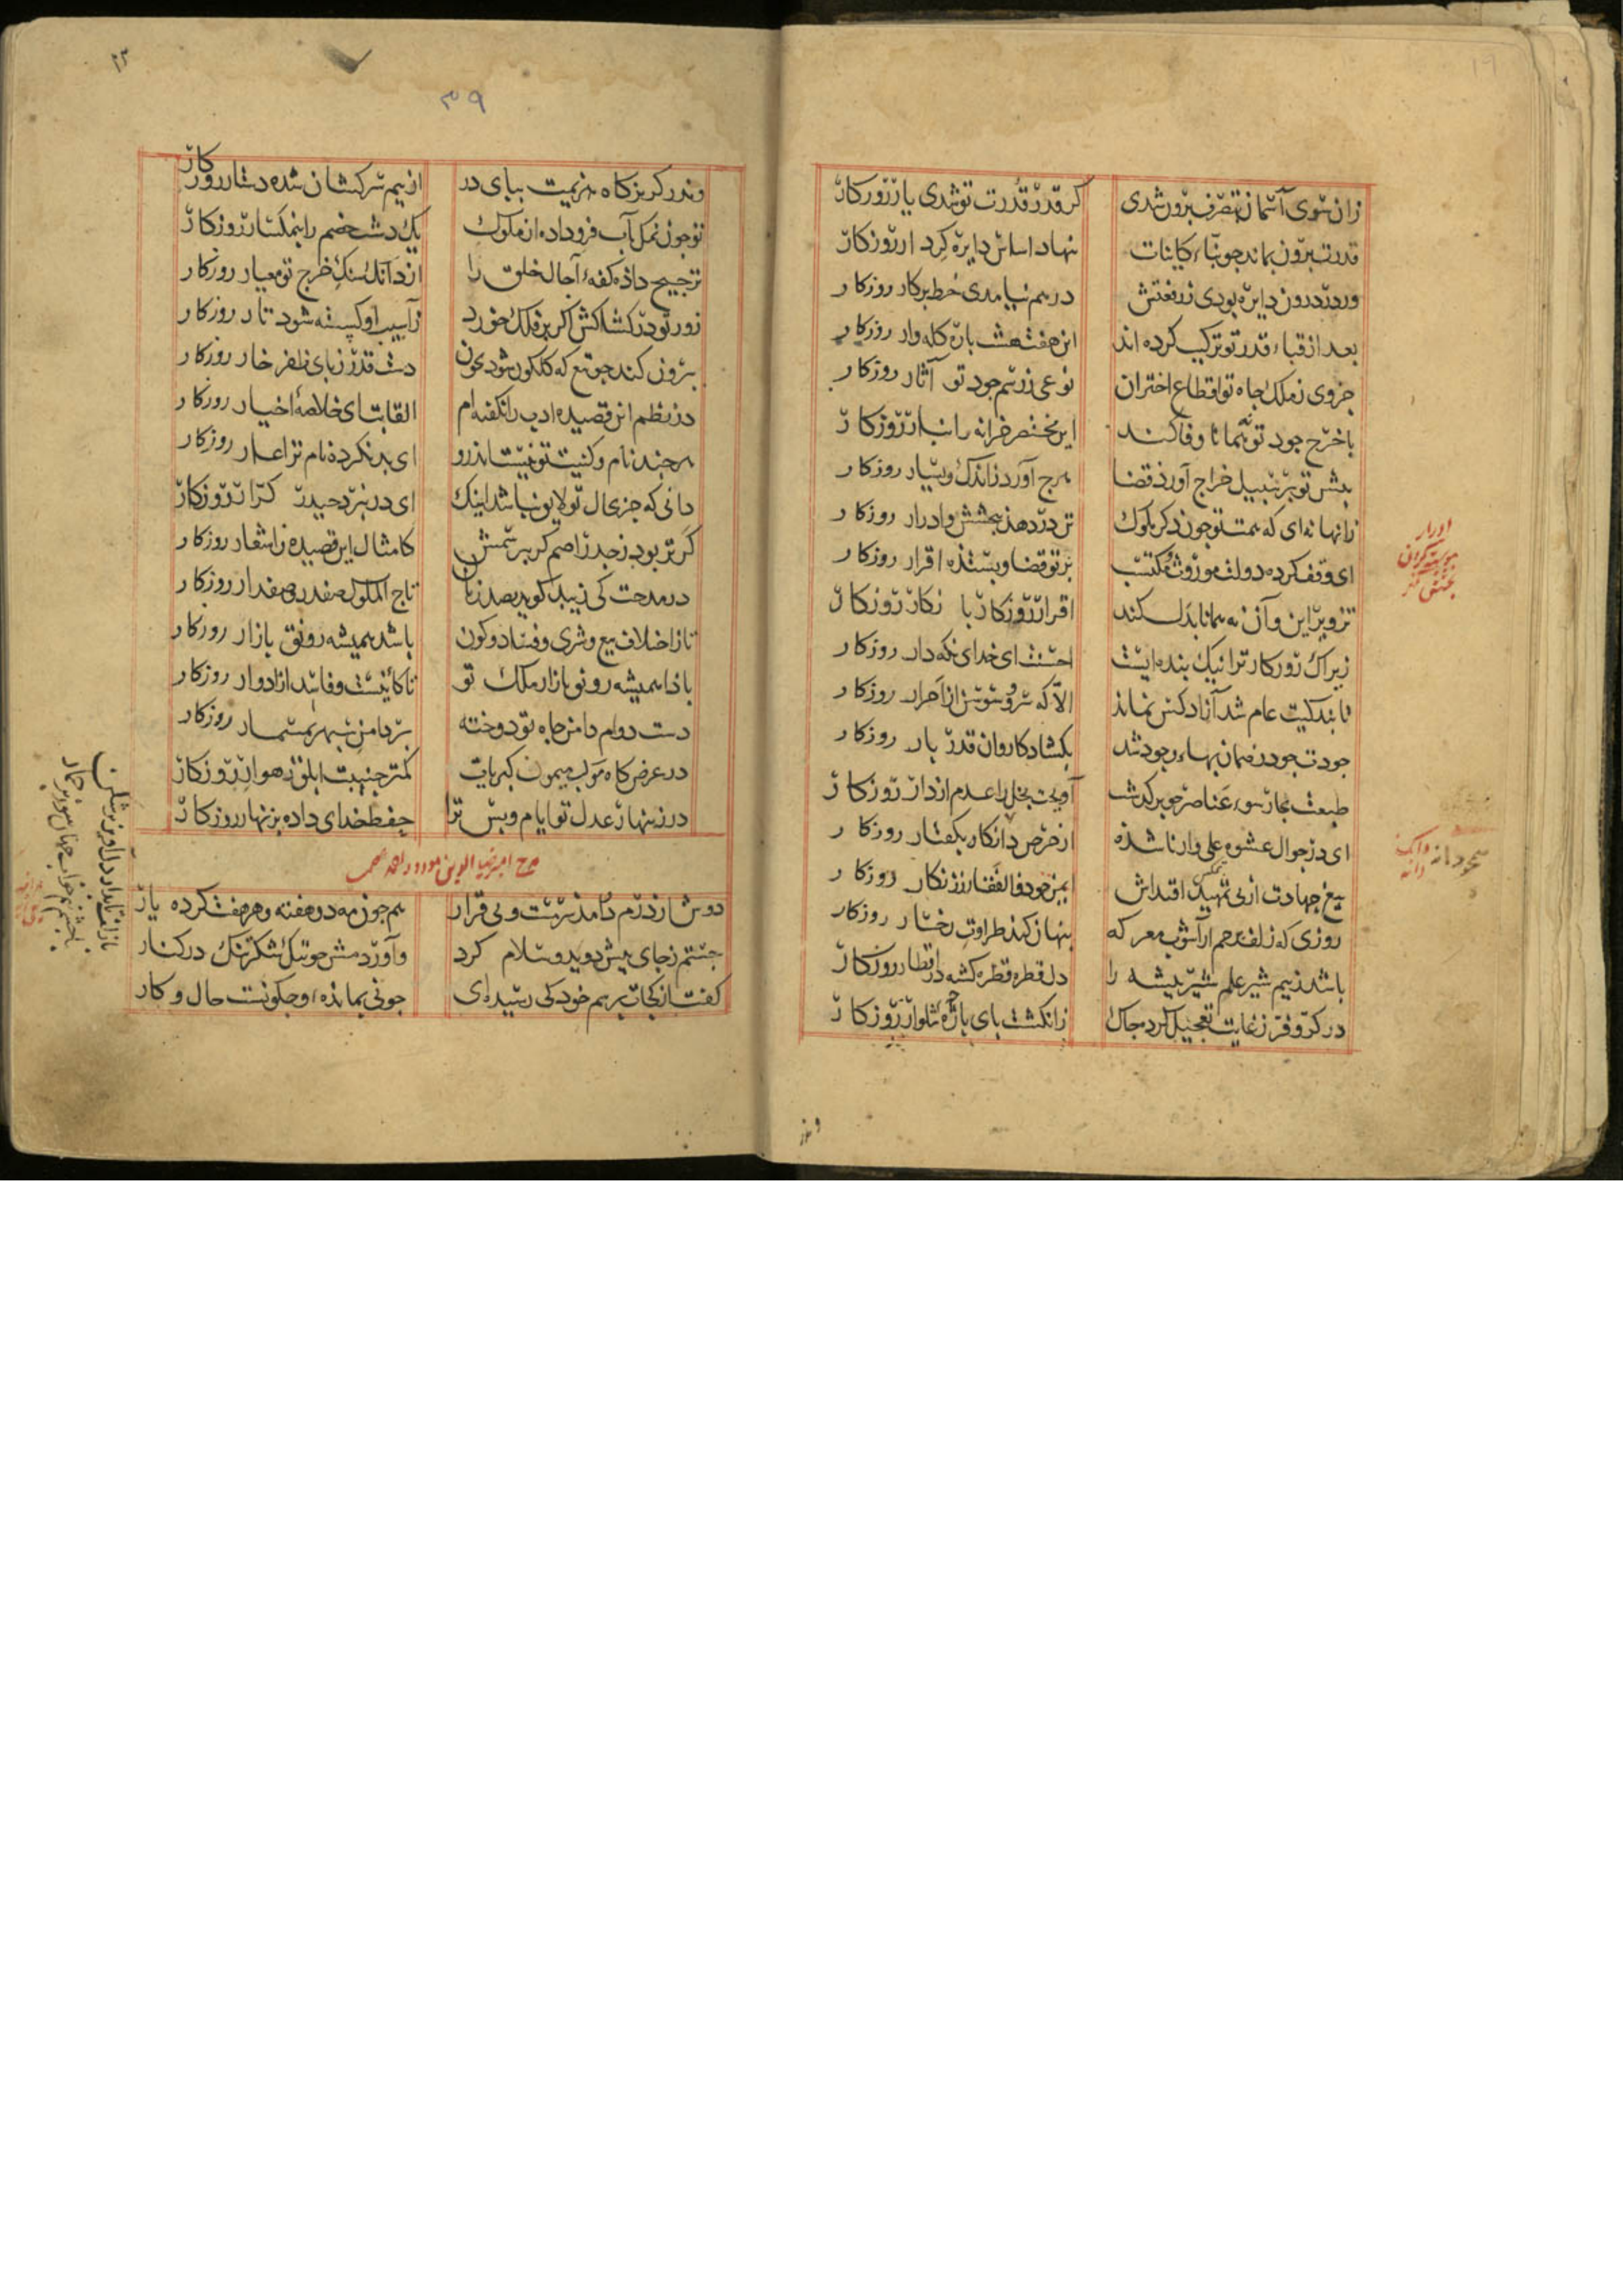 زان سوی آسمان بتصرف برون شدی
کر قدر و قدرت تو شدی یار روزکار
قدرت برون بماند چو بناء کاینات
بنهاد اساس دایره کرد ار روزکار
ورنه درون دایره بودی ز رفعتش
درهم نیامدی خط پرکار روزکار
بعد از قباء قدر تو ترکیب کرده اند
این هفت هشت پاره کله وار روزکار
جزوی ز ملک جاه تو اقطاع اختران
نوعی ز رسم جود تو آثار روزکار
با خرج جود تو همانا وفا کند
این مختصر خزانه و انبار روزکار
پیش تو بر سبیل خراج آورد قضا
هرچ آورد ز اندک و بسیار روزکار
زانها نه ای که همت تو چون دکر ملوک
تن در دهد ببخشش و ادرار روزکار
ای وقف کرده دولت موروث و مکتسب
بر تو قضا و بستده اقرار روزکار
تزویر این و آن نه همانا بدل کند
اقرار روزکار با نکار روزکار
زیراک روزکار ترا نیک بنده ایست
احسنت ای خدای نکه دار روزکار
تا بندکیت عام شد آزاد کس نماند
الا که سرو و سوسن از احرار روزکار
جودت چو در ضمان بهاء وجود شد
بکشاد کاروان قدر بار روزکار
طبعت بچارسوء عناصر چو برکذشت
آویخت بخل را عدم از دار روزکار
ای در جوال عشوه علی وار ناشده
از حرص دانکانه بکفتار روزکار
تیغ جهادت از پی تمهید اقتداش
ایمن چو ذوالفقار ز زنکار روزکار
روزی که زلف پرچم از آشوب معرکه
پنهان کند طراوت رخسار روزکار
باشد ز بیم شیر علم شیر بیشه را
دل قطره قطره کشته در اقطار روزکار
در کر و فر ز غایت تعجیل کرد چاک
ز انکشت پای پاچه شلوار روزکار
ادرار
وندر
۳۹
وندر کریزکاه هزیمت بپای در
از بیم سرکشان شده دستار روزکار
تو چون نمک بآب فرو داده از ملوک
یک دشت خصم را بنمکسار روزکار
ترجیح داده کفهء آجال خلق را
از دانک سنک خرج تو معیار روزکار
زور تو در کشاکش اکر بر فلک خورد
ز آسیب او کسسته شود تار روزکار
بیرون کند چو تیغ که کلکون شود بخون
دست قدر ز پای ظفر خار روزکار
در نظم این قصیده ادب را نکفته ام
القابت ای خلاصهٔ اخیار روزکار
هرچند نام و کنیت تو نیست اندرو
ای بد نکرده نام ترا عار روزکار
دانی که جز بحال تو لایق نباشد اینک
ای در نبرد حیدر کرار روزکار
کر تر بود ز جدر اصم کر بپرسمش
کامثال این قصیده ز اشعار روزکار
در مدحت کی زیبد کوید بصد زبان
تاج الملوک صفدر و صفدار روزکار
تا ز اختلاف بیع و شری و فساد و کون
باشد همیشه رونق بازار روزکار
بادا همیشه رونق بازار ملک تو
تا کاینست و فاسد از ادوار روزکار
دست دوام دامن جاه تو دوخته
بر دامن سپهر بمسمار روزکار
در عرض کاه موکب میمون کبریات
کمتر جنیبت ابلق رهوار روزکار
در زینهار عدل تو ایام و بس ترا
حفظ خدای داده بزنهار روزکار
مدح امیر ضیا الدین مودود احمد عصمی
دوش از درم درآمد سرمست و بی قرار
همچون مه دوهفته و هر هفت کرده یار
جستم ز جای پیش دویدم و سلام کرد
واوردمش چو تنک شکر تنک در کنار
کفت از کجات پرسم خود کی رسیده ای
چونی بمانده ء و چکونست حال و کار
باز لف تابدار دلاویز پرشکن
با چشم نیم خواب جهان سوز پرخمار